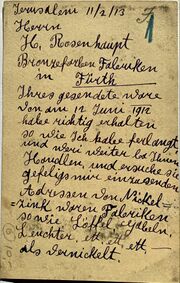 Jerusalem 11/2/13
Herrn
H. Rosenhaupt
Bronzefarben Fabriken
in Fürth
Ihres gesendete ware
von am 12 Juni 1912
habe richtig erhalten
so wie Ich habe verlangt
und weiter bei Ihnen
und ersuche sie
gefeligs mir einzusenden
Adressen von Nickel-
zink waren Fabriken
so wie Löffel Gabeln,
Leuchter, ett. ett. ett.
als vernickelt.